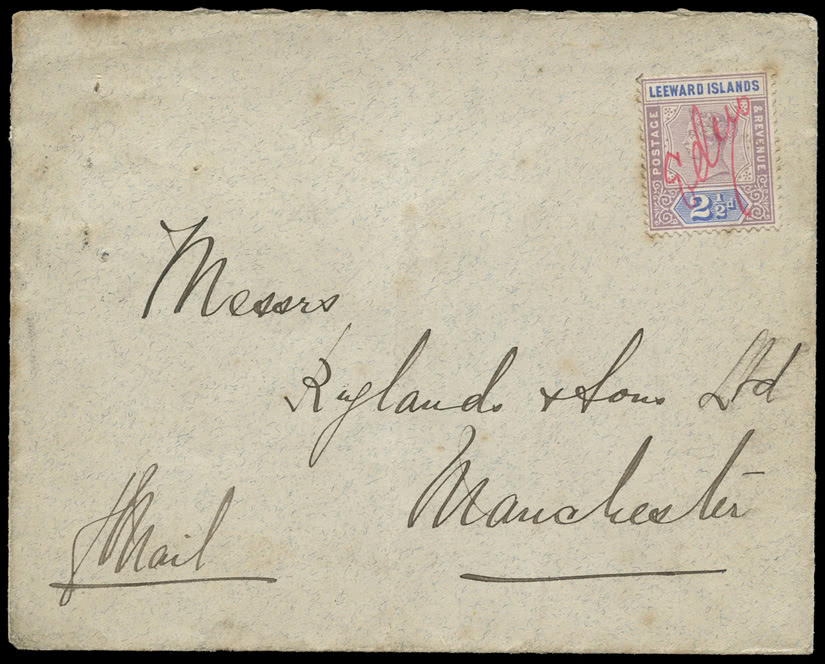 LEEWARD ISLANDS
POSTAGE
& REVENUE
2½d
Messrs
Rylands & Sons Ltd
Manchester
Mail